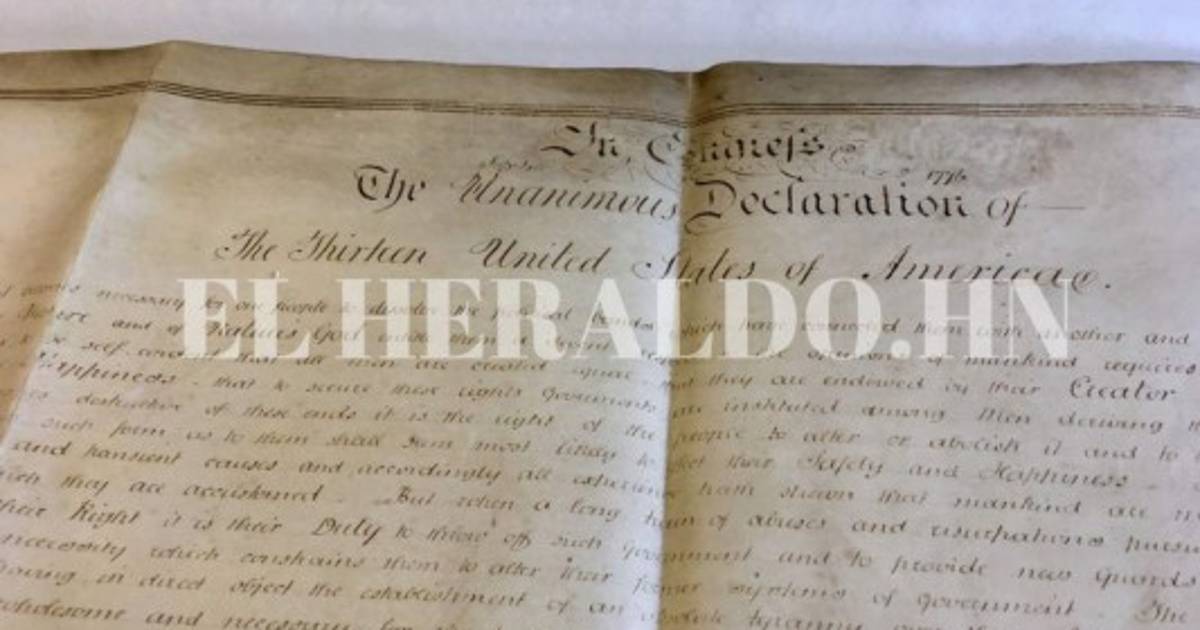 In Congress
1776
The Unanimous Declaration of —
The Thirteen United States of America.
EL HERALDO.HN
necessary for one people to dissolve the political bands which have connected them with another and
and of Natures God entitle them a decent the opinions of mankind requires
self-evident that all men are created equal that they are endowed by their Creator
Happiness - that to secure these rights Governments are instituted among Men deriving
destructive of these ends it is the right of the people to alter or abolish it and to
such form as to them shall seem most likely to effect their Safety and Happiness -
and transient causes and accordingly all experience hath shewn that mankind are
which they are accustomed - But when a long train of abuses and usurpations
their Right it is their Duty to throw off such Government and to provide new Guards
necessity which constrains them to alter their former systems of Government - The
having in direct object the establishment of an absolute tyranny over
wholesome and necessary for